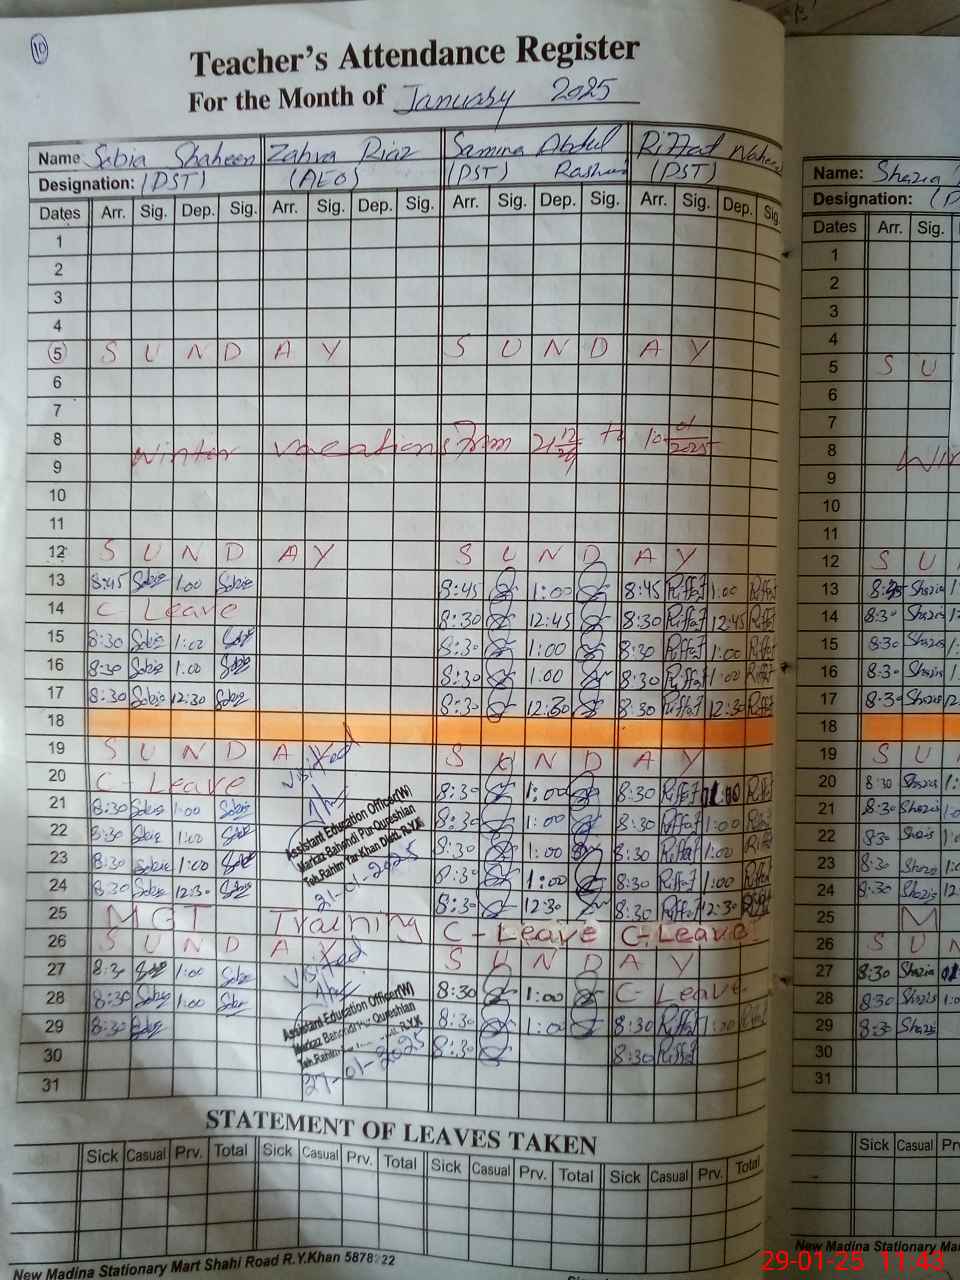 10
Teacher's Attendance Register
For the Month of January 2025
Name Sabia Shaheen Zahra Riaz Samina Abdul Rasheed Riffat Naheed
Designation: (DST) (AEO) (PST) (PST)
Dates Arr. Sig. Dep. Sig. Arr. Sig. Dep. Sig. Arr. Sig. Dep. Sig. Arr. Sig. Dep. Sig.
1
2
3
4
5 S U N D A Y S U N D A Y
6
7
8 Winter vacations from 21 12/24 to 10-01/2025
9
10
11
12 S U N D A Y S U N D A Y
13 8:45 Sabie 1:00 Sabie 8:45 1:00 8:45 Riffat 1:00 Riffat
14 C Leave 8:30 12:45 8:30 Riffat 12:45 Riffat
15 8:30 Sabie 1:00 Sabie 8:30 1:00 8:30 Riffat 1:00 Riffat
16 8:30 Sabie 1:00 Sabie 8:30 1:00 8:30 Riffat 1:00 Riffat
17 8:30 Sabie 12:30 Sabie 8:30 12:30 8:30 Riffat 12:30 Riffat
18
19 S U N D A Y S U N D A Y
20 C-Leave 8:30 1:00 8:30 Riffat 1:00 Riffat
21 8:30 Sabie 1:00 Sabie 8:30 1:00 8:30 Riffat 1:00 Riffat
22 8:30 Sabie 1:00 Sabie 8:30 1:00 8:30 Riffat 1:00 Riffat
23 8:30 Sabie 1:00 Sabie 8:30 1:00 8:30 Riffat 1:00 Riffat
24 8:30 Sabie 12:30 Sabie 8:30 12:30 8:30 Riffat 12:30 Riffat
25 MGT Training C-Leave C-Leave
26 S U N D A Y S U N D A Y
27 8:30 1:00 Sabie 8:30 1:00 C-Leave
28 8:30 Sabie 1:00 Sabie 8:30 1:00 8:30 Riffat 1:00 Riffat
29 8:30 Sabie 8:30 8:30 Riffat
30
31
Visited
Assistant Education Officer(W)
Markaz Bahondi Pur Qureshian
Teh.Rahim Yar Khan Distt: R.Y.K
21-01-2025
Visited
Assistant Education Officer(W)
Markaz Bahondi Pur Qureshian
Teh.Rahim R.Y.K
27-01-2025
STATEMENT OF LEAVES TAKEN
Sick Casual Prv. Total Sick Casual Prv. Total Sick Casual Prv. Total Sick Casual Prv. Total
New Madina Stationary Mart Shahi Road R.Y.Khan 5878 22
Name: Shazia
Designation:
Dates Arr. Sig.
1
2
3
4
5 S U
6
7
8 Win
9
10
11
12 S U
13 8:45 Shazia
14 8:30 Shazia
15 8:30 Shazia
16 8:30 Shazia
17 8:30 Shazia
18
19 S U
20 8:30 Shazia 1:
21 8:30 Shazia
22 8:30 Shazia
23 8:30 Shazia
24 8:30 Shazia
25 M
26 S U N
27 8:30 Shazia
28 8:30 Shazia
29 8:30 Shazia
30
31
Sick Casual
New Madina Stationary Ma
29-01-25 11:43